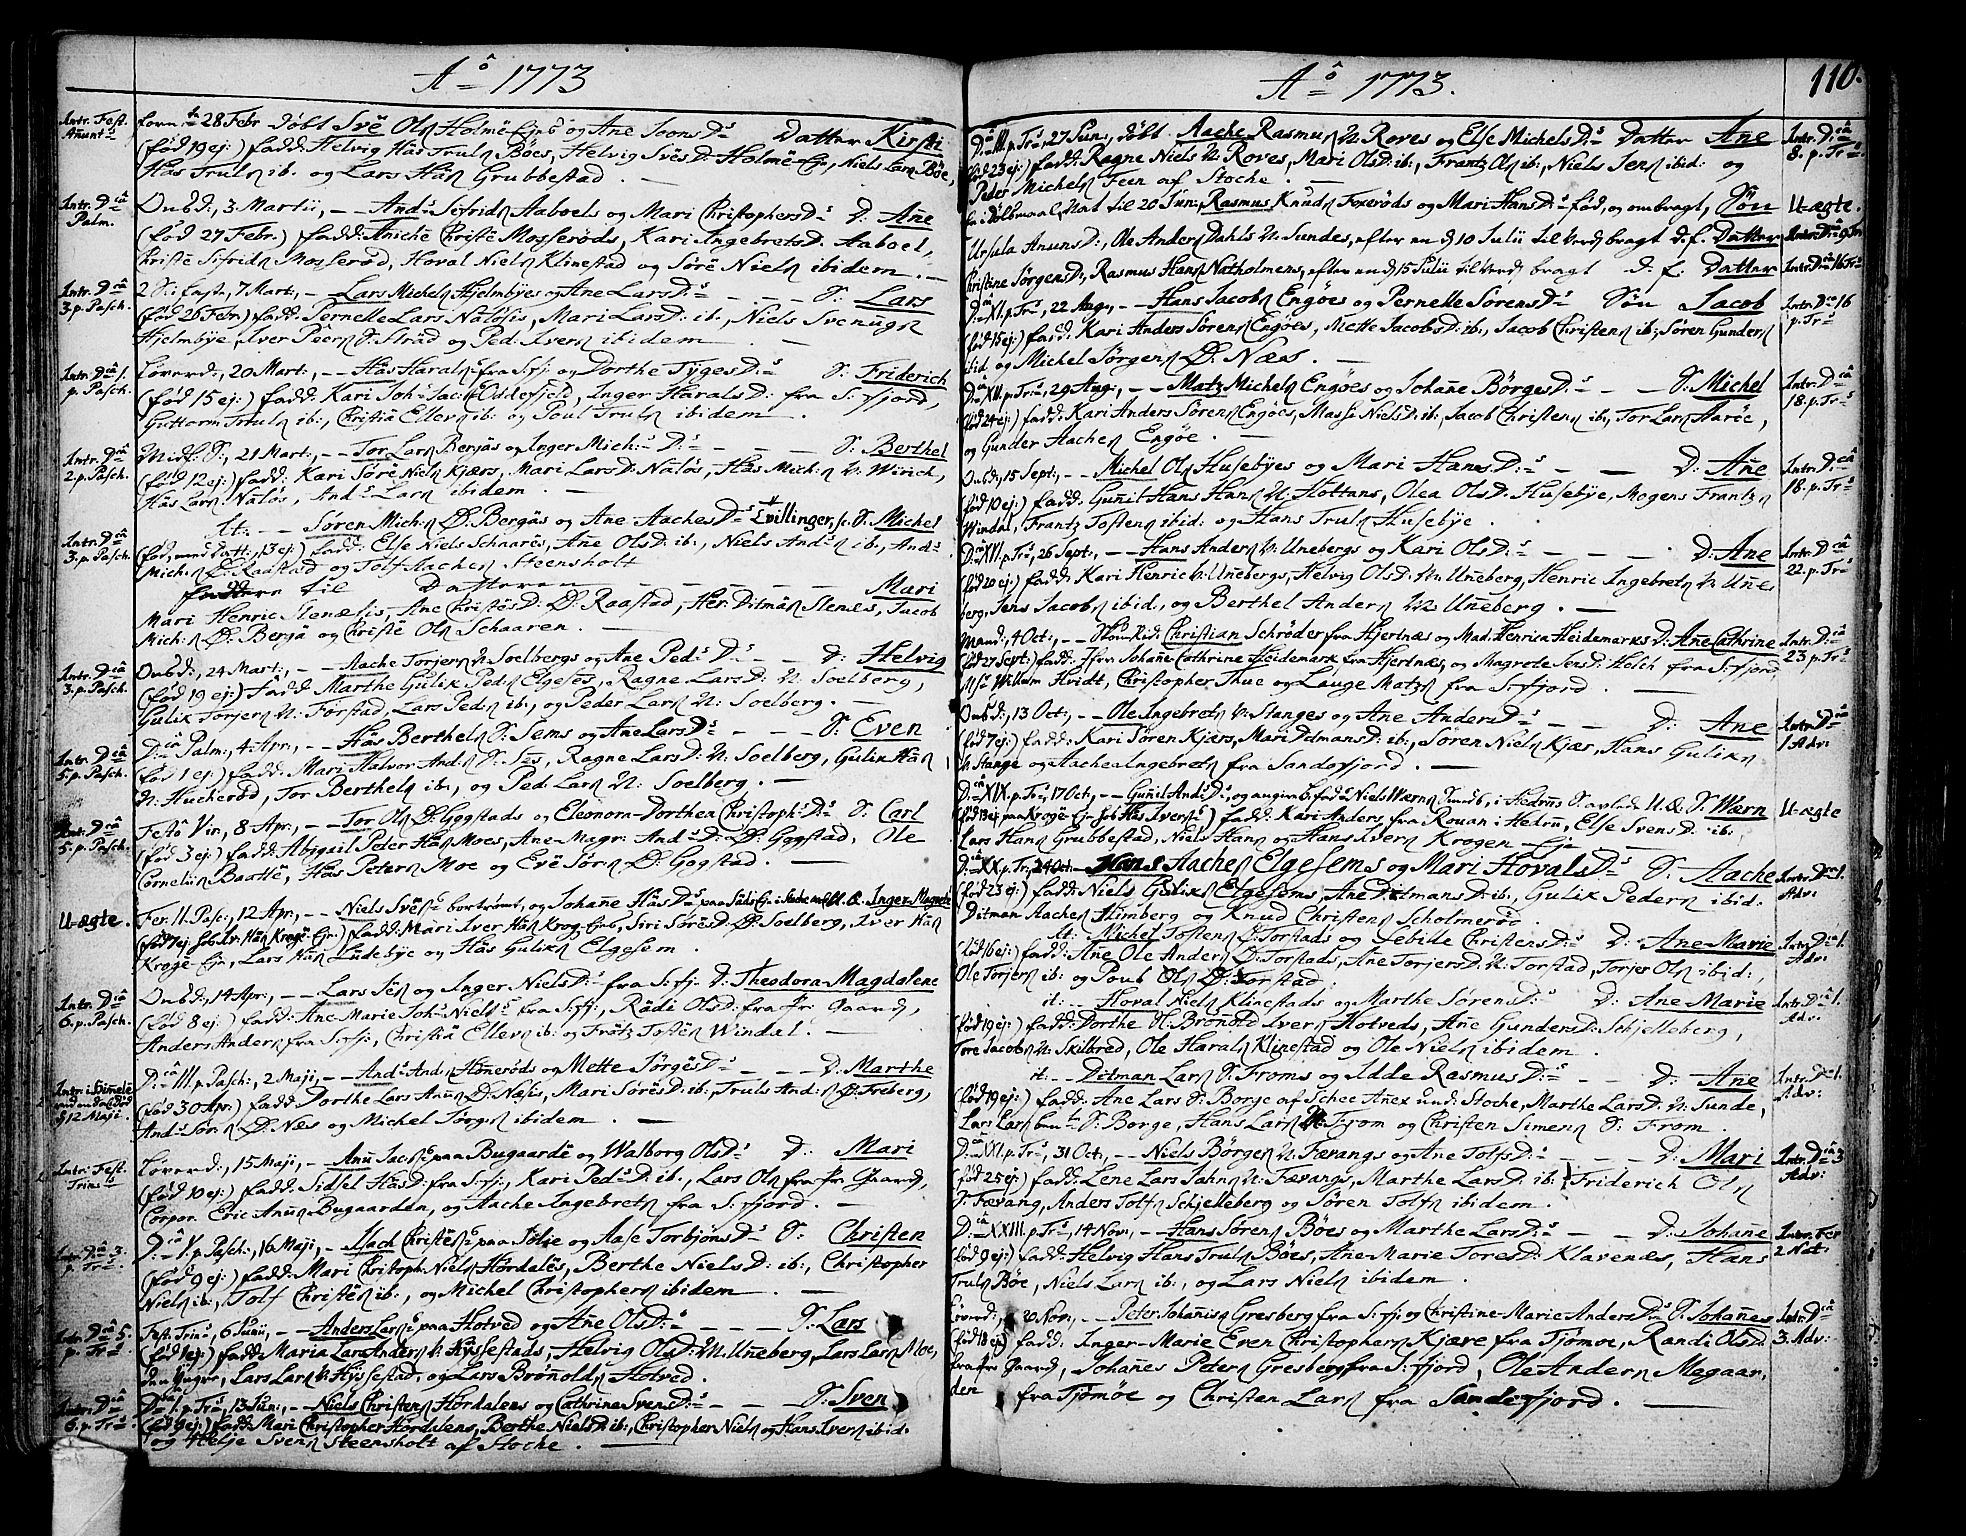 Aô 1773
Intr. Fest. Añunt:
28 Febr døbt Svē Ols Holme Ejes og Ane Joons D: Datter Kirsti
(fød 19 ej:) fadd: Helvig Hās Truls Bøes, Helvig Svēs D: Holme-Ejn, Niels Lars Bøe,
Hās Truls ib. og Lars Hās Grubbestad.
Intr. D: Palm.
Onsd:, 3 Martii, -- And: Sifrids Aaboels og Mari Christophers D: D: Añe
(fød 27 Febr.) fadd: Aniche Christē Mosserøds, Kari Ingebrets D. Aaboel,
Christē Sifrids Mosserød, Hoval Niels Klinestad og Sørē Niels ibidem.
Intr. D: 3. p. Pasch.
2 S: i Faste, 7 Mart:, -- Lars Michels Hjelmbyes og Ane Lars D: S: Lars
(fød 26 Febr) fadd: Pernelle Lars Nāløsis, Mari Lars D: ib:, Niels Svenugs
Hjelmbye, Iver Peers S: Strād og Ped: Ivers ibidem
Intr. D: 1. p. Pasch.
Løverd:, 20 Mart:, -- Hās Harals fra S:fj: og Dorthe Tyges D: S: Friderich
(fød 15 ej:) fadd: Kari Joh: Jac: Oddefjeld, Inger Harals D: fra S:fjord,
Guttorm Truls ib:, Christiā Ellevs ib: og Poul Truls ibidem.
Intr. D: 2. p. Pasch.
Midf. S:, 21 Mart:, -- Tor Lars Bergās og Inger Mich: D: S: Berthel
(fød 12 ej:) fadd: Kari Sørē Niels Kjærs, Mari Lars D: Nāløs, Hās Mich: V: Virich,
Hās Lars Nāløs, And: Lars ibidem.
Intr. D: 3. p. Pasch.
it: -- Søren Mich: Ø: Bergās og Ane Aaches D: Tvillinger, s: S: Michel
(fød, mens Datt:, 13 ej:) fadd: Else Niels Schaarēs, Añe Ols D: ib:, Niels And: ib:, And:
Mich: Ø: Raastad og Tolf Aaches Steensholt
til Datteren Mari
Mari Henric Stenæsis, Ane Christēs D: Ø: Raastad, Her: Ditmās Stenæs, Jacob
Mich: Ø: Bergā og Christē Ols Schaaren.
Intr. D: 3. p. Pasch.
Onsd:, 24 Mart:, -- Aache Torjers N: Soelbergs og Ane Ped: D: D: Helvig
(fød 19 ej:) fadd: Marthe Gulik Peds Elgesēs, Ragne Lars D: N: Soelberg,
Gulik Torjers N: Forstad, Lars Peds ib:, og Peder Lars N: Soelberg.
Intr. D: 5. p. Pasch.
D: Palm:, 4 Apr:, -- Hās Berthels S: Sems og Ane Lars D: S: Even
(fød 1 ej:) fadd: Mari Halvor And: S: Sēs, Ragne Lars D: N: Soelberg, Gulik Hās
N: Huckerød, Tor Berthels ib:, og Ped: Lars N: Soelberg.
Intr. D: 5. p. Pasch.
Festo Vir:, 8 Apr:, -- Tor Ols Ø: Gogstads og Eleonora-Dorthea Christoph: D: S: Carl
(fød 3 ej:) fadd: Abigail Peder Hās Moes, Ane-Magr: And: D: Ø: Gogstad, Ole
Corneliis Baattē, Hās Peters Moe og Evē Sørs Ø: Gogstad.
U-ægte.
Fer. II. Pasc:, 12 Apr:, -- Niels Svēs bortrømt, og Johañe Hās D: Inger-Magrete
fadd: Mari Iver Hās Krog-Ejn, Siri Sørēs D: Soelberg, Iver Hās
Krogē Ejn, Lars Hās Lūdebye og Hās Guliks Elgesem.
Intr. D: 6. p. Pasch.
Onsd:, 14 Apr:, -- Lars Jēs og Inger Niels D: fra S:fj: D: Theodora-Magdalene
(fød 8 ej:) fadd: Ane Marie Joh: Niels fra S:fj:, Rādi Ols D: fra Pr Gaard,
Anders Anders fra S:fj:, Christiā Ellevs ib: og Frātz Tostēs Windal.
Intr.
D: III. p. Pasch:, 2 Maji, -- And: And: Hōnerøds og Mette Jørgēs D: D: Marthe
(fød 30 Apr:) fadd: Dorthe Lars Anūs Ø: Nāss, Mari Sørēs D: ib:, Truls And: Ø: Freberg,
And: Sørs Ø: Næs og Michel Jørgs ibidem.
Intr. Fest. Trin:
Løverd:, 15 Maji, -- Anū Jacs: paa Bugaardē og Walborg Ols D: D: Mari
(fød 10 ej:) fadd: Sidsel Hās D: fra S:fj:, Kari Ped: D: ib:, Lars Ols fra Pr Gaard,
Corpor. Eric Anūs Bugaarden, og Aache Ingebrets fra S:fjord.
Intr. D: 3. p. Tr:
D: V. p. Pasch:, 16 Maji, -- Mach Christēs paa Sølje og Aase Torbjøns D: S: Christen
(fød 9 ej:) fadd: Mari Christoph: Niels Hørdalēs, Berthe Niels D: ib:, Christopher
Niels ib:, Tolf Christēs ib:, og Michel Christophers ibidem.
Intr. D: 5. p. Tr:
Fest. Trin:, 6 Junii, -- Anders Lars: paa Hotved og Ane Ols D: S: Lars
fadd: Maria Lars Anders V: Hyssestads, Helvig Ols D: N: Uneberg, Lars Lars Moe,
den Yngre, Lars Lars V: Hyssestad, og Lars Brønolds Hotved.
Intr. D: 6. p. Tr:
D: I. p. Tr:, 13 Jun:, -- Niels Christens Hørdalens og Cathrine Svens D: S: Sven
(fød 9 ej:) fadd: Mari Christopher Hørdalens, Berthe Niels D: ib:, Christopher Niels og Hans Ivers ibid.
og Helje Svens Steensholt af Stoche.
Aô 1773.
110.
D: III. p. Tr:, 27 Jun:, døbt Aache Rasmus N: Roves og Else Michels D: Datter Ane
Intr. D: 8. p. Tr:
(fød 23 ej:) fadd: Ragne Niels N: Roves, Mari Ols D: ib:, Frantz Ols ib:, Niels Jens ibid: og
Peder Michels Feen af Stoche.
Nat til 20 Jun:, Rasmus Knuds Foxerøds og Mari Hans D: fød, og ombragt, Søn
U-ægte.
Ursula Anuns D:, Ole Anders Dahls N: Sundes, efter en d 10 Julii til Verd bragt d. f. Datter
Christine Jørgens D:, Rasmus Hans Natholmens, efter en d 15 Julii til Verd bragt d. f. Datter
D: XI. p. Tr:, 22 Aug:, -- Hans Jacobs Engøes og Pernelle Sørens D: Søn Jacob
Intr. D: 16 p. Tr:
(fød 15 ej:) fadd: Kari Anders Sørens Engøes, Mette Jacobs D: ib:, Jacob Christens ib:, Søren Gunders
ibid: og Michel Jørgens Ø: Næss.
D: XII. p. Tr:, 29 Aug:, -- Matz Michels Engøes og Johañe Børges D: S: Michel
Intr. D: 18. p. Tr:
(fød 24 ej:) fadd: Kari Anders Sørens Engøes, Masse Niels D: ib:, Jacob Christens ib:, Tor Lars Aarøe,
og Gunder Aaches Engøe.
Onsd:, 15 Sept:, -- Michel Ols Husebyes og Mari Hans D: D: Añe
Intr. D: 18. p. Tr:
(fød 10 ej:) fadd: Guñil Hans Hans N: Hottans, Olea Ols D: Husebye, Mogens Frantzs
Windal, Frantz Tostens ibid: og Hans Truls Husebye.
D: XVI. p. Tr:, 26 Sept:, -- Hans Anders N: Unebergs og Kari Ols D: D: Ane
Intr. D: 22. p. Tr:
(fød 20 ej:) fadd: Kari Henric N: Uñebergs, Helvig Ols D: N: Uñeberg, Henric Ingebrets N: Uñe
berg, Jens Jacobs ibid:, og Berthel Anders N: Uñeberg.
Mand:, 4 Oct:, -- Christian Schrøder fra Hjertnæs og Mad: Henrica Heidemarks D: Ane Cathrine
Intr. D: 23. p. Tr:
(fød 27 Sept:) fadd: Jfrv Johañe Cathrine Heidemark fra Hjertnæs og Magrete Jens D: Helch fra S:fjord
Msr Willum Hvidt, Christopher Thue og Lauge Matzs fra S:fjord.
Onsd:, 13 Oct:, -- Ole Ingebrets N: Stanges og Ane Anders D: D: Ane
Intr. D: 1 Adv:
(fød 7 ej:) fadd: Kari Søren Kjærs, Mari Ditmans D: ib:, Søren Niels Kjæs, Hans Guliks
N: Stange og Aache Ingebrets fra Sandefjord.
D: XIX. p. Tr:, 17 Oct:, -- Guñil And: D:, og angiven b. fader Niels Wærns S: Wærn
U-ægte
fadd: Kari Anders fra Rouan i Hedrū, Else Svens D: ib.
Lars Hans Grubbestad, Niels Hans og Hans Ivers Krogen-Eje
D: XX. p. Tr:, 24 Oct: -- Hans Aaches Elgesems og Mari Hovals D: S: Aache
Intr. D: 1. Adv:
(fød 23 ej:) fadd: Niels Guliks Elgesems, Ane Ditmans D: ib:, Gulik Peders ibid:
Ditman Aaches Himberg og Knud Christens Scholmerøe.
it: Michel Tostens Ø: Torstads og Sebille Christens D: D: Ane-Marie
Intr. D: 1. Adv:
(fød 16 ej:) fadd: Añe Ole Anders Ø: Torstads, Añe Torjers D: N: Torstad, Torjer Ols ibid:
Ole Torjers ib: og Povel Ols Ø: Torstad.
it: -- Hoval Niels Klinestads og Marthe Sørens D: D: Ane Marie
Intr. D: 1. Adv:
(fød 19 ej:) fadd: Dorthe H: Brønold Ivers Hotveds, Añe Gunders D: Schjelleberg,
Tore Jacobs N: Skilbred, Ole Harals Klinestad og Ole Niels ibidem.
it: -- Ditman Lars S: Froms og Idde Rasmus D: D: Ane
Intr. D: 1. Adv:
(fød 19 ej:) fadd: Ane Lars S: Borge af Schee Añex und: Stoche, Marthe Lars D: N: Sunde,
Lars Lars S: Borge, Hans Lars N: From og Christen Simens S: From.
D: XXI. p. Tr:, 31 Oct:, -- Niels Børges N: Fævangs og Ane Tolfs D: D: Mari
Intr. D: 3 Adv:
(fød 25 ej:) fadd: Lene Lars Jahns N: Fævangs, Marthe Lars D: ib: Friderich Ols
S: Fævang, Anders Tolfs Schjelleberg og Søren Tolfs ibidem.
D: XXIII. p. Tr:, 14 Nov:, -- Hans Sørens Bøes og Marthe Lars D: D: Johañe
Intr. Fer 2 Nat:
(fød 9 ej:) fadd: Helvig Hans Truls Bøes, Ane-Marie Tores D: Klavenæs, Hans
Truls Bøe, Niels Lars ib:, og Lars Niels ibidem.
Løverd:, 20 Nov:, -- Peter Johaniss Gresberg fra S:fj: og Christine-Marie Anders D: S: Johañes
Intr. D: 3. Adv:
(fød 18 ej:) fadd: Inger-Marie Even Christophers Kjære fra Tjømoe, Randi Ols D:
fra Pr Gaarden, Johañes Peters Gresberg fra S:fjord, Ole Anders Megaar,
fra Tjømøe og Christen Lars fra Sandefjord.